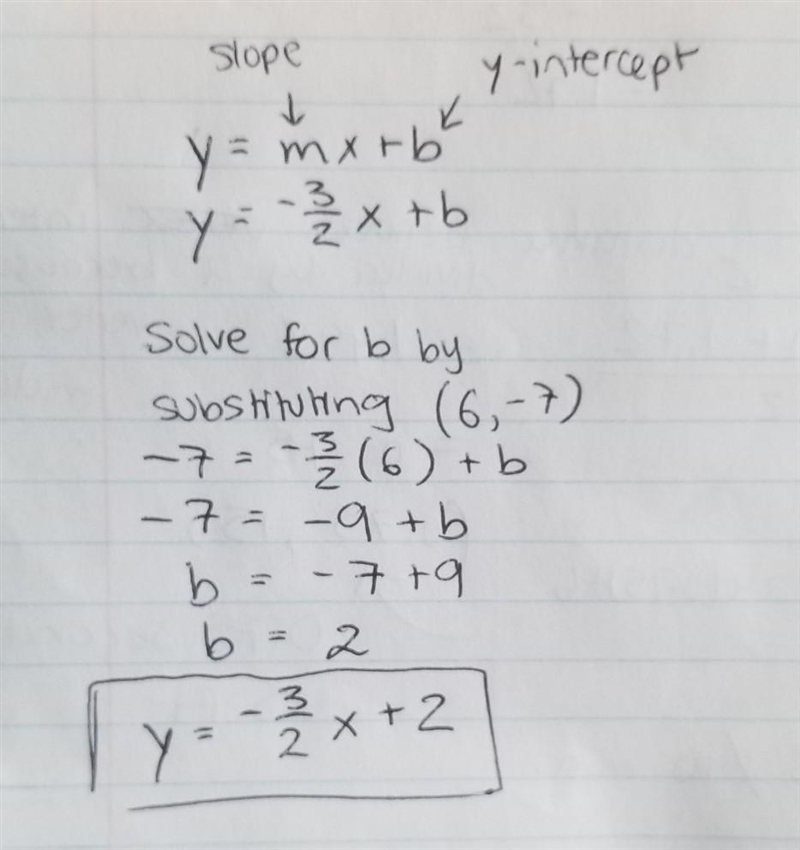 slope y-intercept
↓ ↙
y = mx+b
y = -3/2 x +b
Solve for b by
substituting (6,-7)
-7 = -3/2 (6) + b
-7 = -9 + b
b = -7+9
b = 2
y = -3/2 x +2